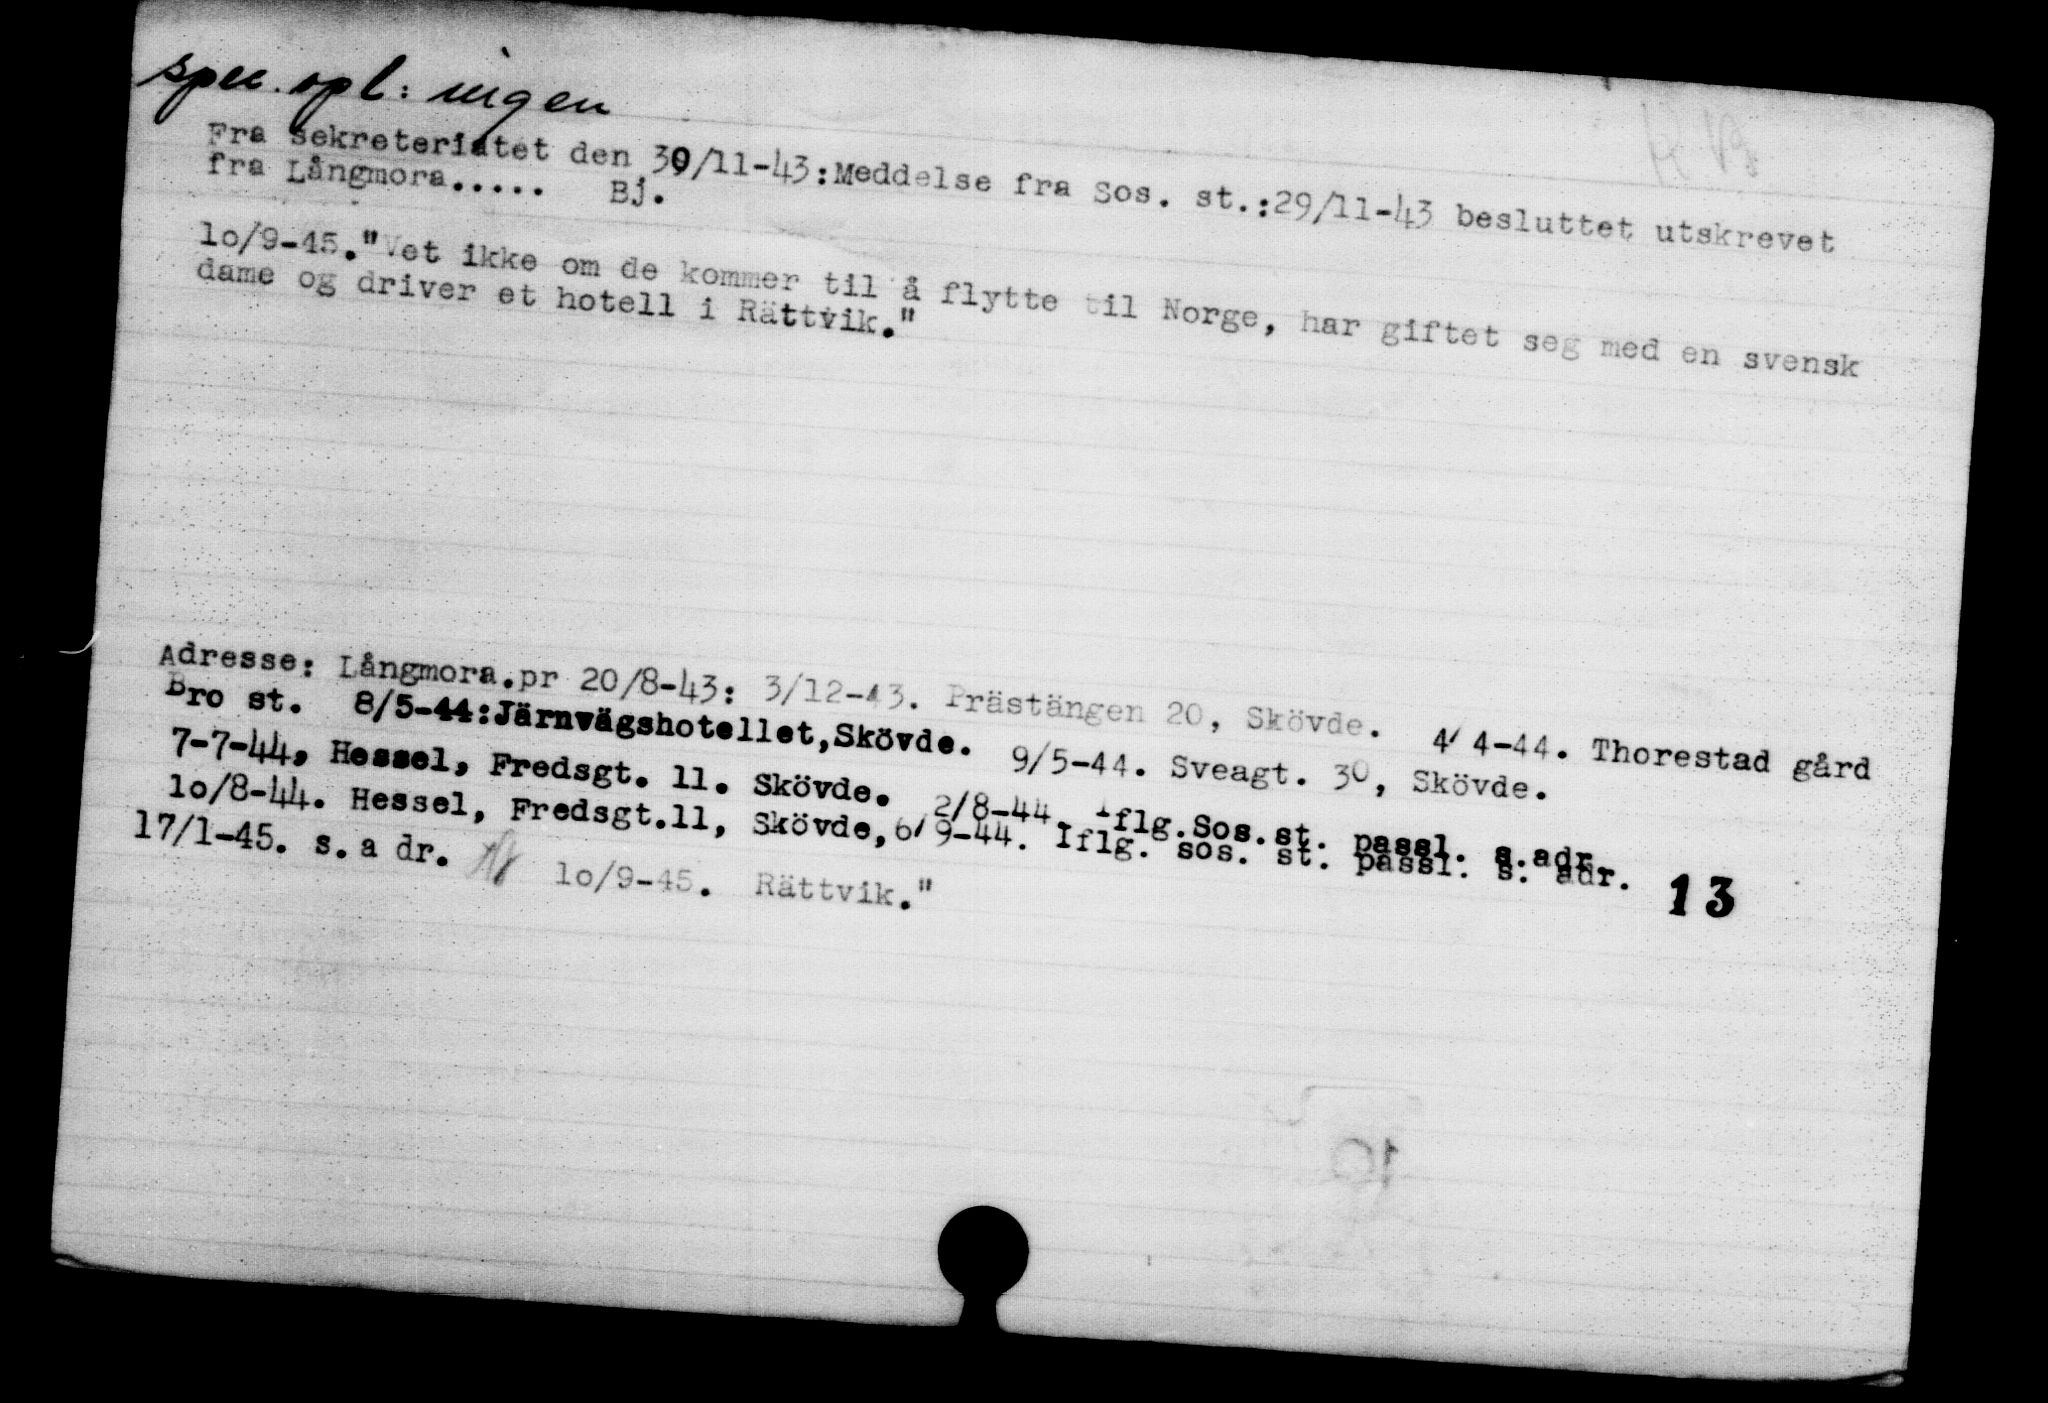 spec. opl: ingen
Fra sekreteriatet den 30/11-43:Meddelse fra Sos. st.:29/11-43 besluttet utskrevet
fra Långmora..... Bj.
lo/9-45."Vet ikke om de kommer til å flytte til Norge, har giftet seg med en svensk
dame og driver et hotell i Rättvik."
Adresse: Långmora.pr 20/8-43: 3/12-43. Prästängen 20, Skövde. 4/4-44. Thorestad gård
Bro st. 8/5-44:Järnvägshotellet,Skövde. 9/5-44. Sveagt. 30, Skövde.
7-7-44, Hessel, Fredsgt. 11. Skövde. 2/8-44. Iflg.Sos.st. passl. s.adr.
lo/8-44. Hessel, Fredsgt.11, Skövde,6/9-44. Iflg. sos. st. passl. s. adr.
17/1-45. s.a dr. lo/9-45. Rättvik."
13